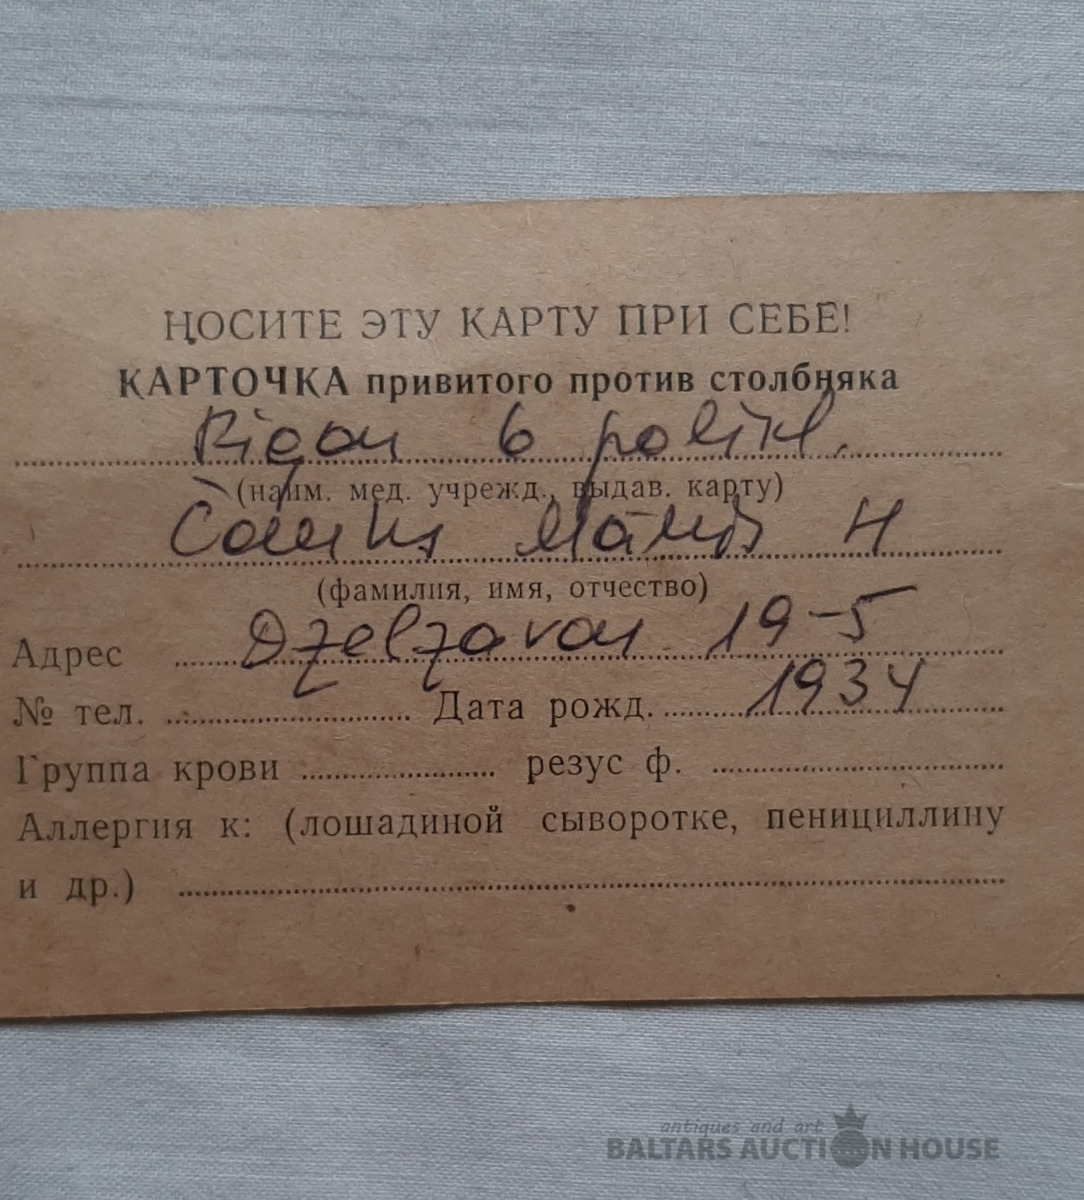 НОСИТЕ ЭТУ КАРТУ ПРИ СЕБЕ!
КАРТОЧКА привитого против столбняка
6 polikl.
(наим. мед. учрежд., выдав. карту)
Māris H
(фамилия, имя, отчество)
Адрес Dzelzavas 19-5
№ тел. Дата рожд. 1934
Группа крови резус ф.
Аллергия к: (лошадиной сыворотке, пенициллину
и др.)
antiques and art
BALTARS AUCTION HOUSE